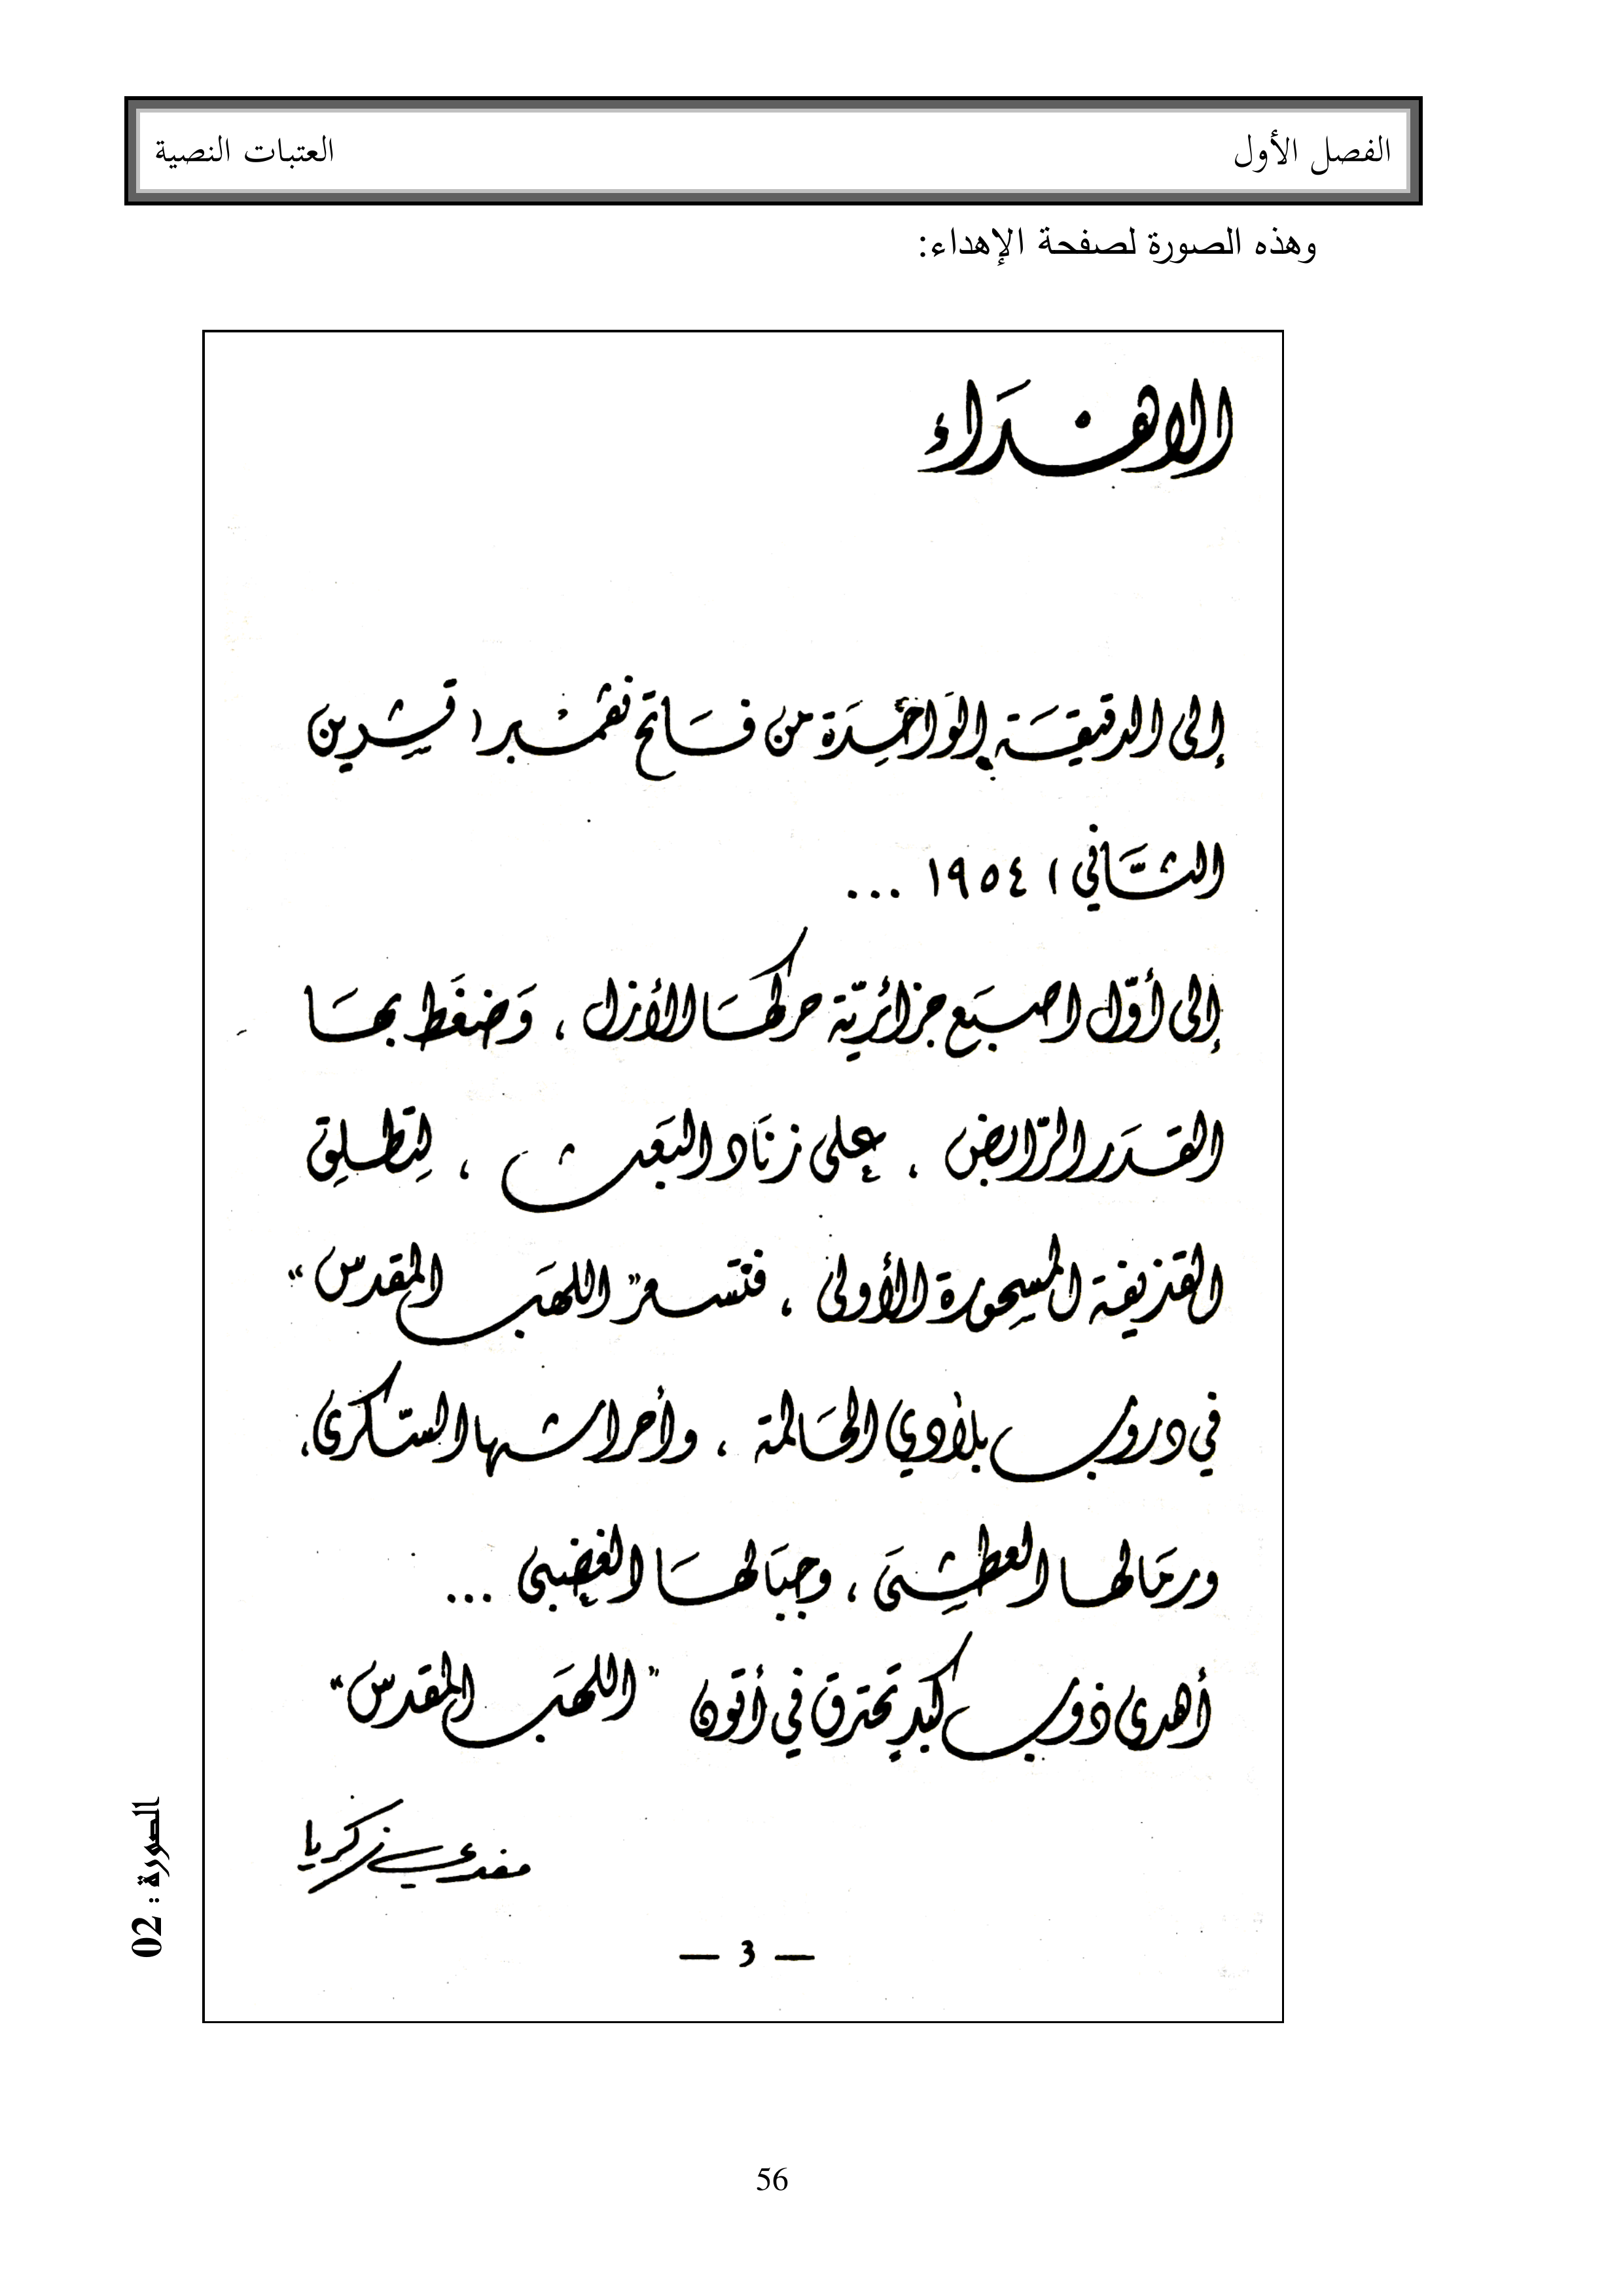 الفصل الأول العتبات النصية
وهذه الصورة لصفحة الإهداء:
الاهداء
إلى الدقيقة الواحدة من فاتح نفمبر ( تشرين
الثاني ) ١٩٥٤ ...
إلى أوّل اصبع جزائريّة حركها الأزل ، وضغط بها
القدر الرّابض ، على زناد البعث ، لتطلق
القذيفة المسحورة الأولى ، فتسعر " اللهب المقدس "
في دروب بلادي الحالمة ، وأحراشها السّكرى ،
ورمالها العطشى ، وجبالها الغضبى ...
أهدى ذوب كبد تحترق في أتون " اللهب المقدس "
مفدي زكريا
— 3 —
الصورة : 02
56